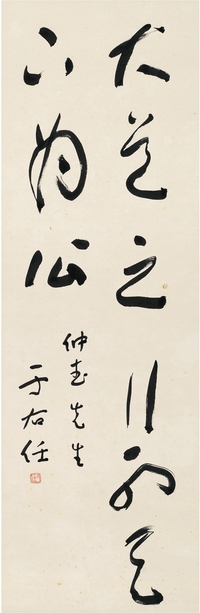 大道之行也天
下为公
仲志先生
于右任